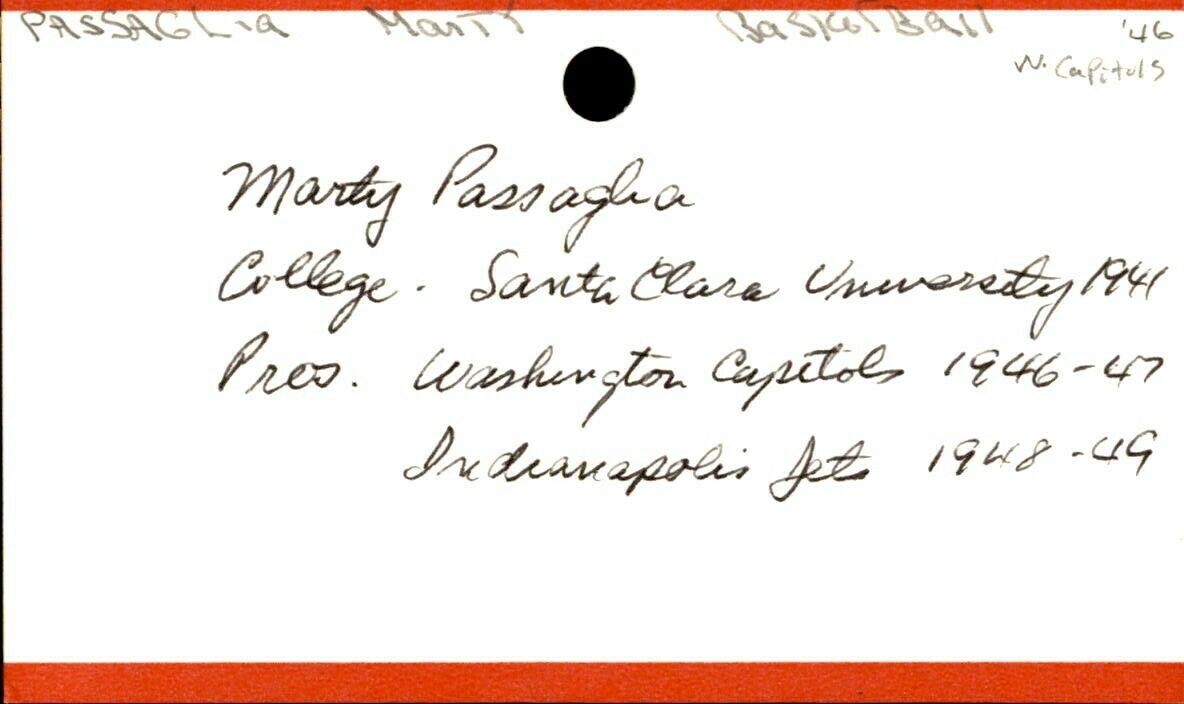 PASSAGLia Marty BasketBall '46
W. Capitols
Marty Passaglia
College. Santa Clara University 1941
Pros. Washington Capitols 1946-47
Indianapolis Jets 1948-49